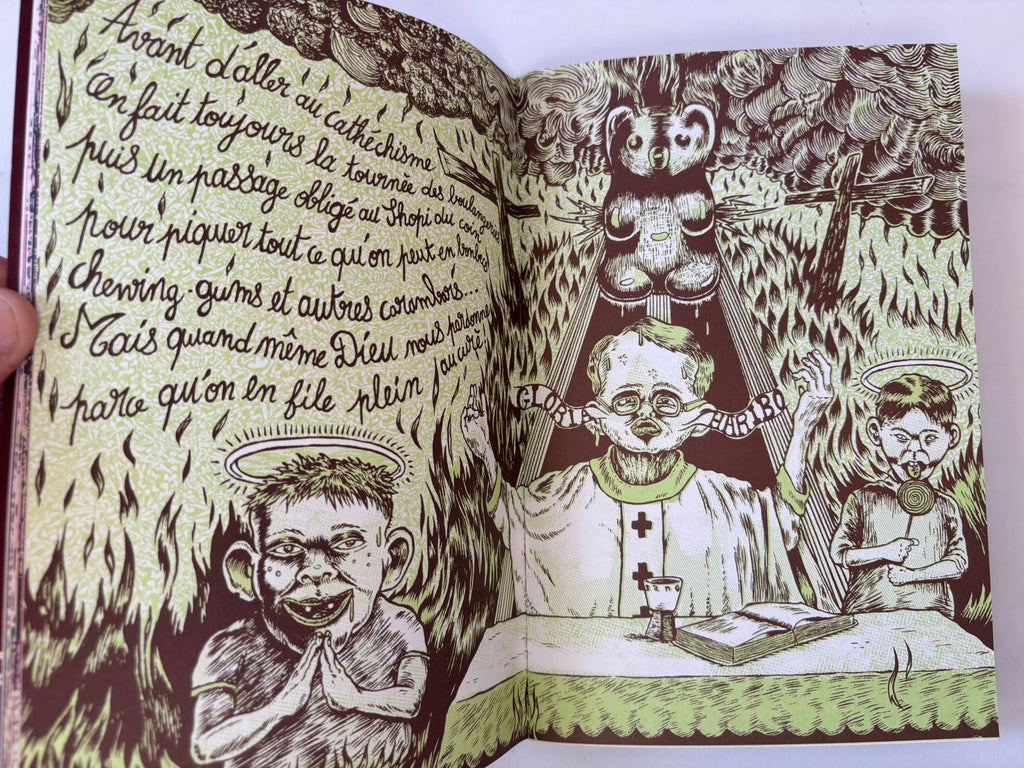 Avant d'aller au cathéchisme
on fait toujours la tournée des boulangeries
puis un passage obligé au Shopi du coin
pour piquer tout ce qu'on peut en bonbons
chewing-gums et autres carambars...
Mais quand même Dieu nous pardonne
parce qu'on en file plein au curé
GLORIA
HARIBO